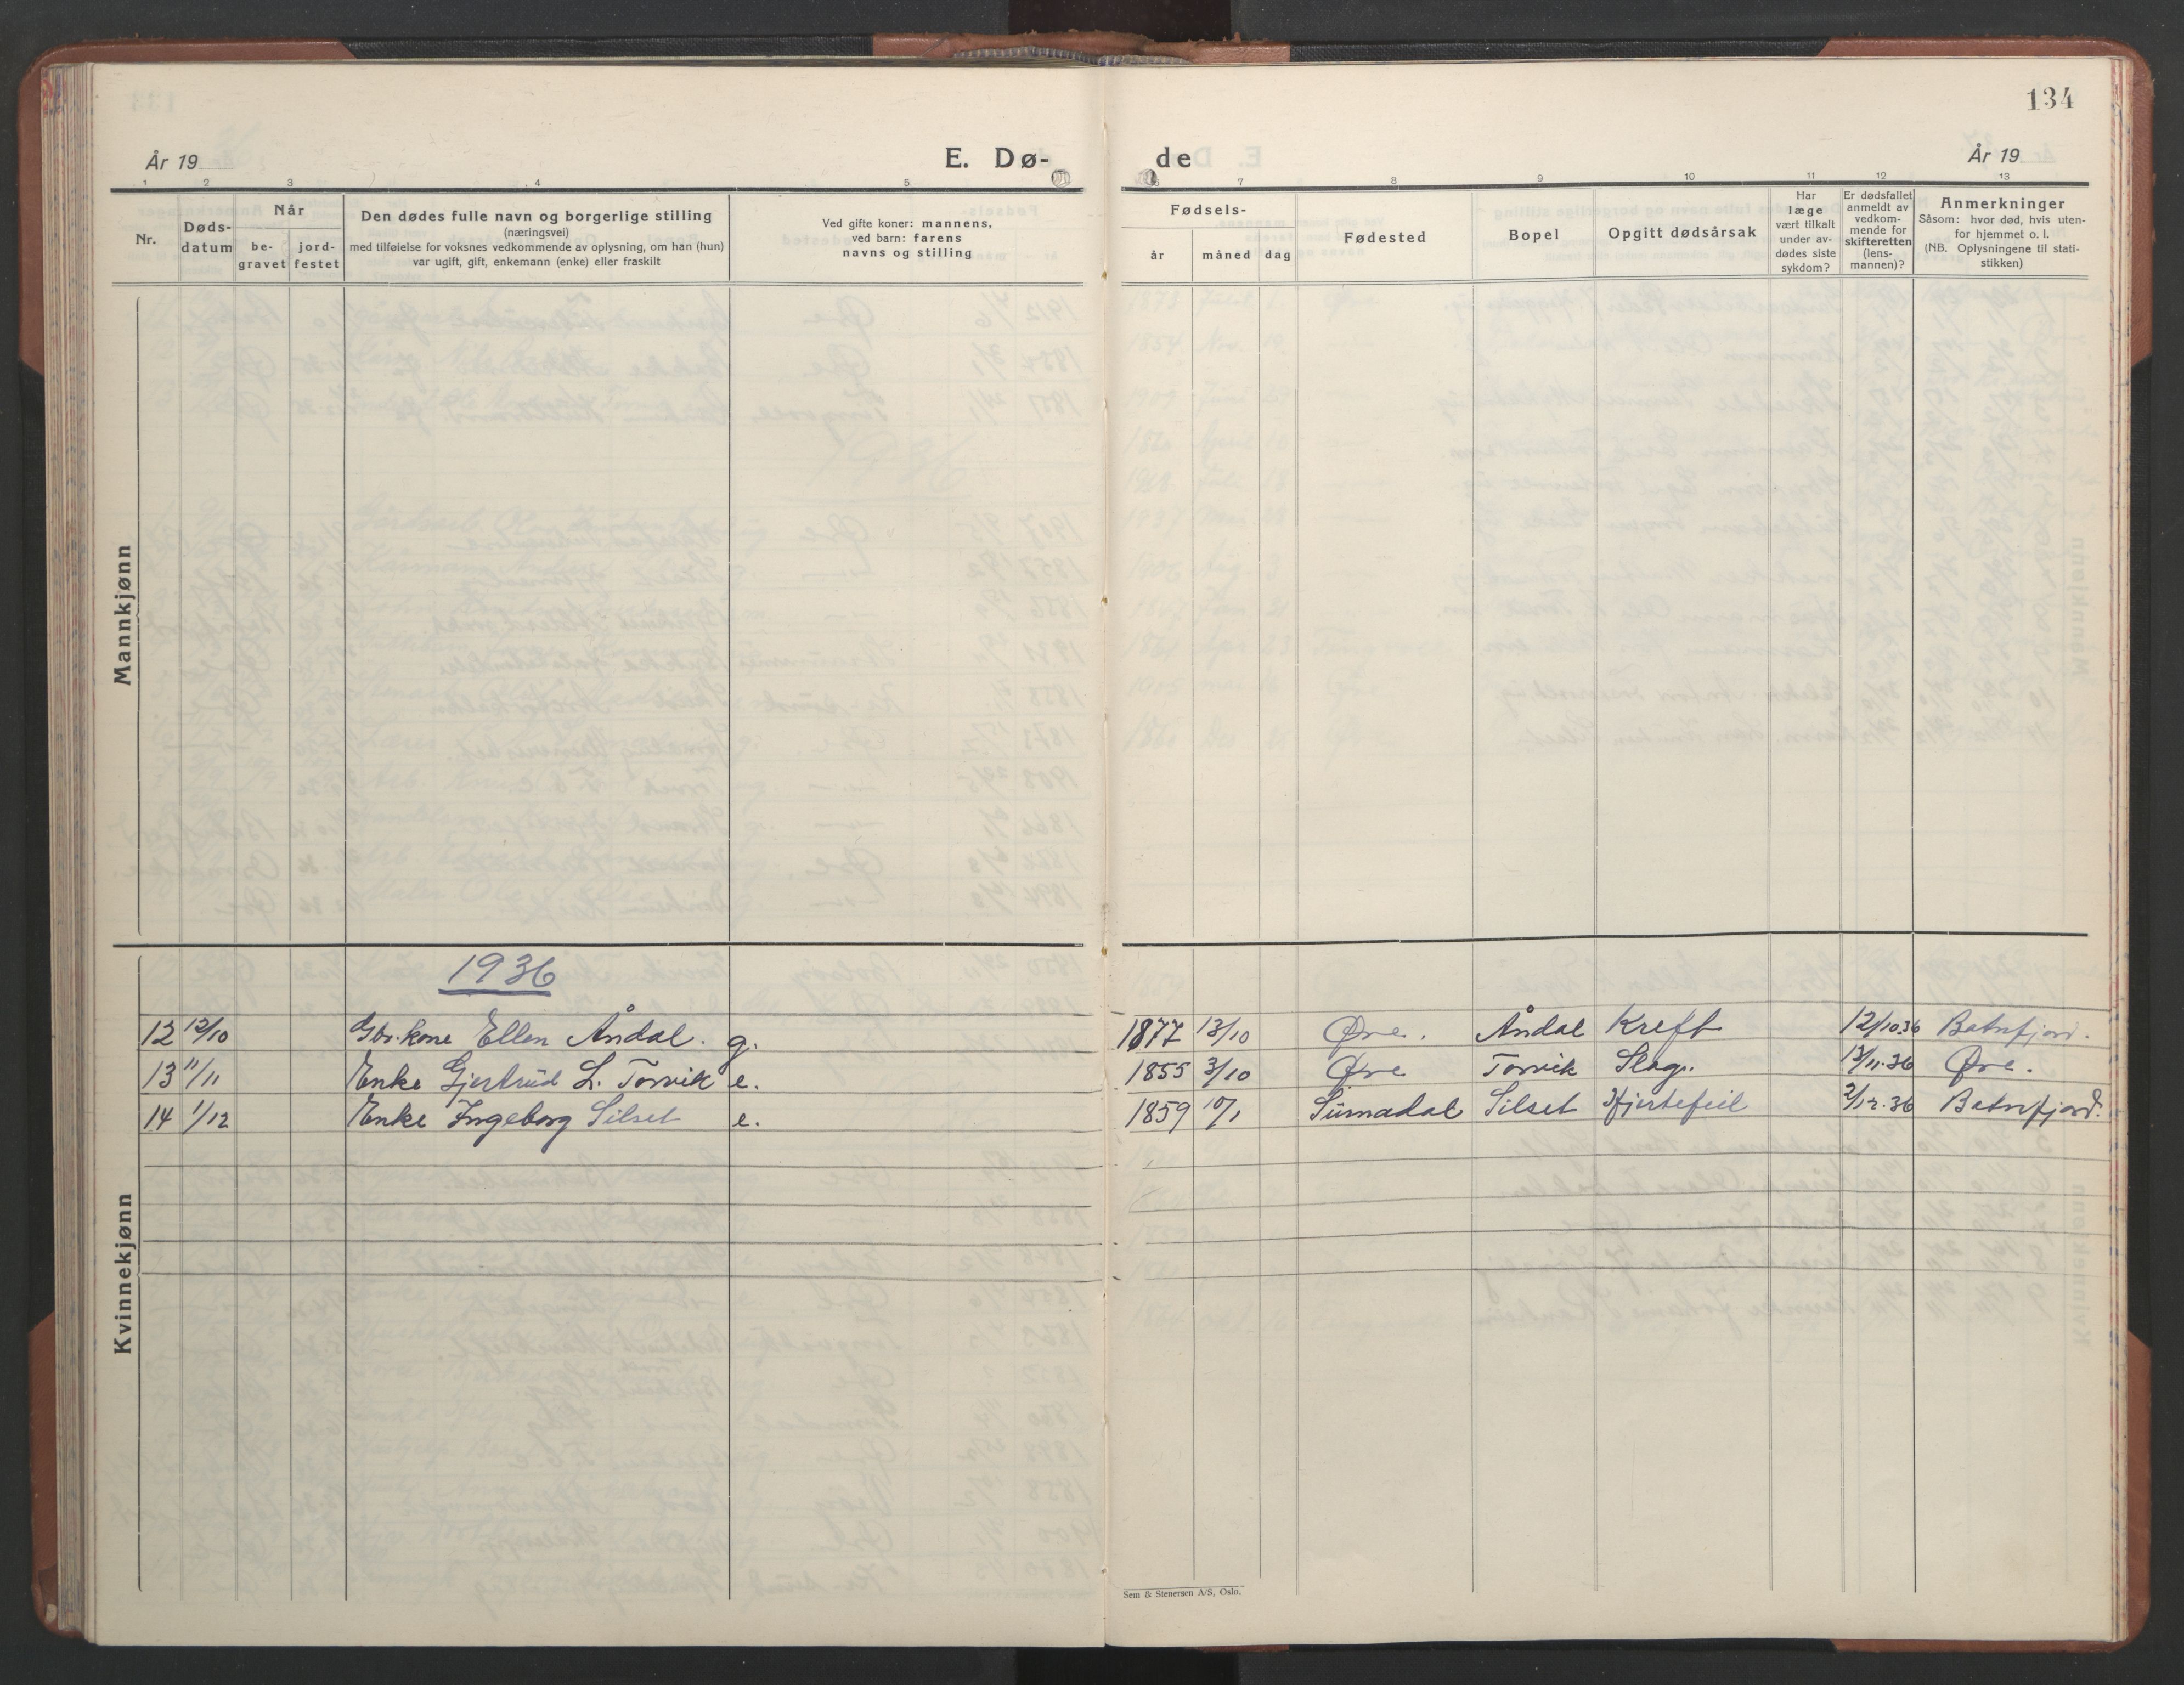 134
År 19
E. Dø-
de
År 19
1 2 3 4 5 6 7 8 9 10 11 12 13
Nr.
Døds-
datum
Når
be-
gravet
jord-
festet
Den dødes fulle navn og borgerlige stilling
(næringsvei)
med tilføielse for voksnes vedkommende av oplysning, om han (hun)
var ugift, gift, enkemann (enke) eller fraskilt
Ved gifte koner: mannens,
ved barn: farens
navns og stilling
Fødsels-
år
måned
dag
Fødested
Bopel
Opgitt dødsårsak
Har
læge
vært tilkalt
under av-
dødes siste
sykdom?
Er dødsfallet
anmeldt av
vedkom-
mende for
skifteretten
(lens-
mannen)?
Anmerkninger
Såsom: hvor død, hvis uten-
for hjemmet o. l.
(NB. Oplysningene til stati-
stikken)
Mannkjønn
Kvinnekjønn
1936
12 12/10 Gbr.kone Ellen Åndal. g. 1877 13/10 Øre. Åndal Kreft 12/10.36 Batnfjord.
13 11/11 Enke Gjertrud L. Torvik e. 1855 3/10 Øre Torvik Slag. 13/11.36 Øre.
14 1/12 Enke Ingeborg Silset e. 1859 10/1 Surnadal Silset Hjertefeil 2/12.36 Batnfjord.
Sem & Stenersen A/S, Oslo.